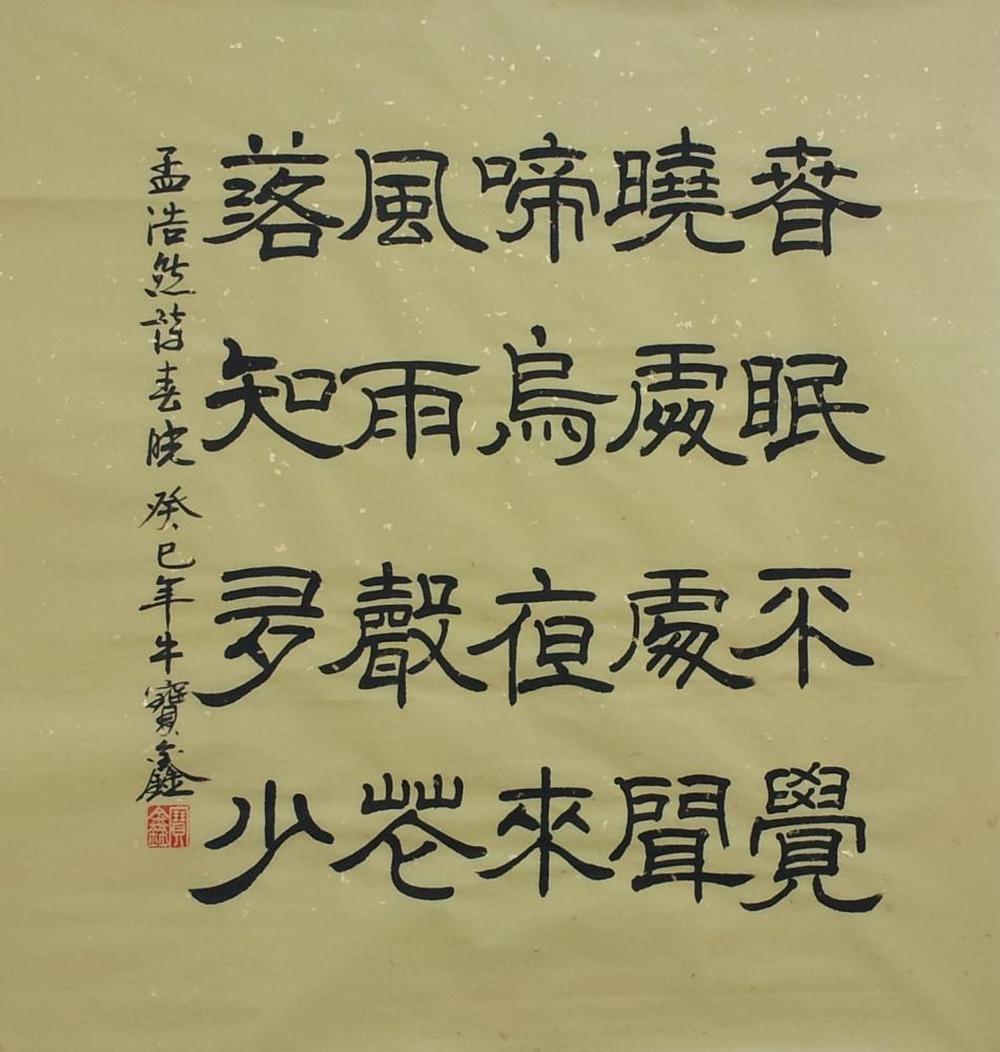 春眠不覺
曉處處聞
啼鳥夜來
風雨聲花
落知多少
孟浩然诗春晓 癸巳年牛寶鑫
寶鑫